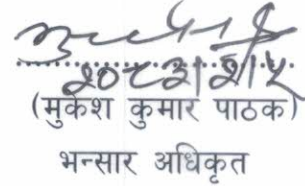 २०८३।२।५
(मुकेश कुमार पाठक)
भन्सार अधिकृत